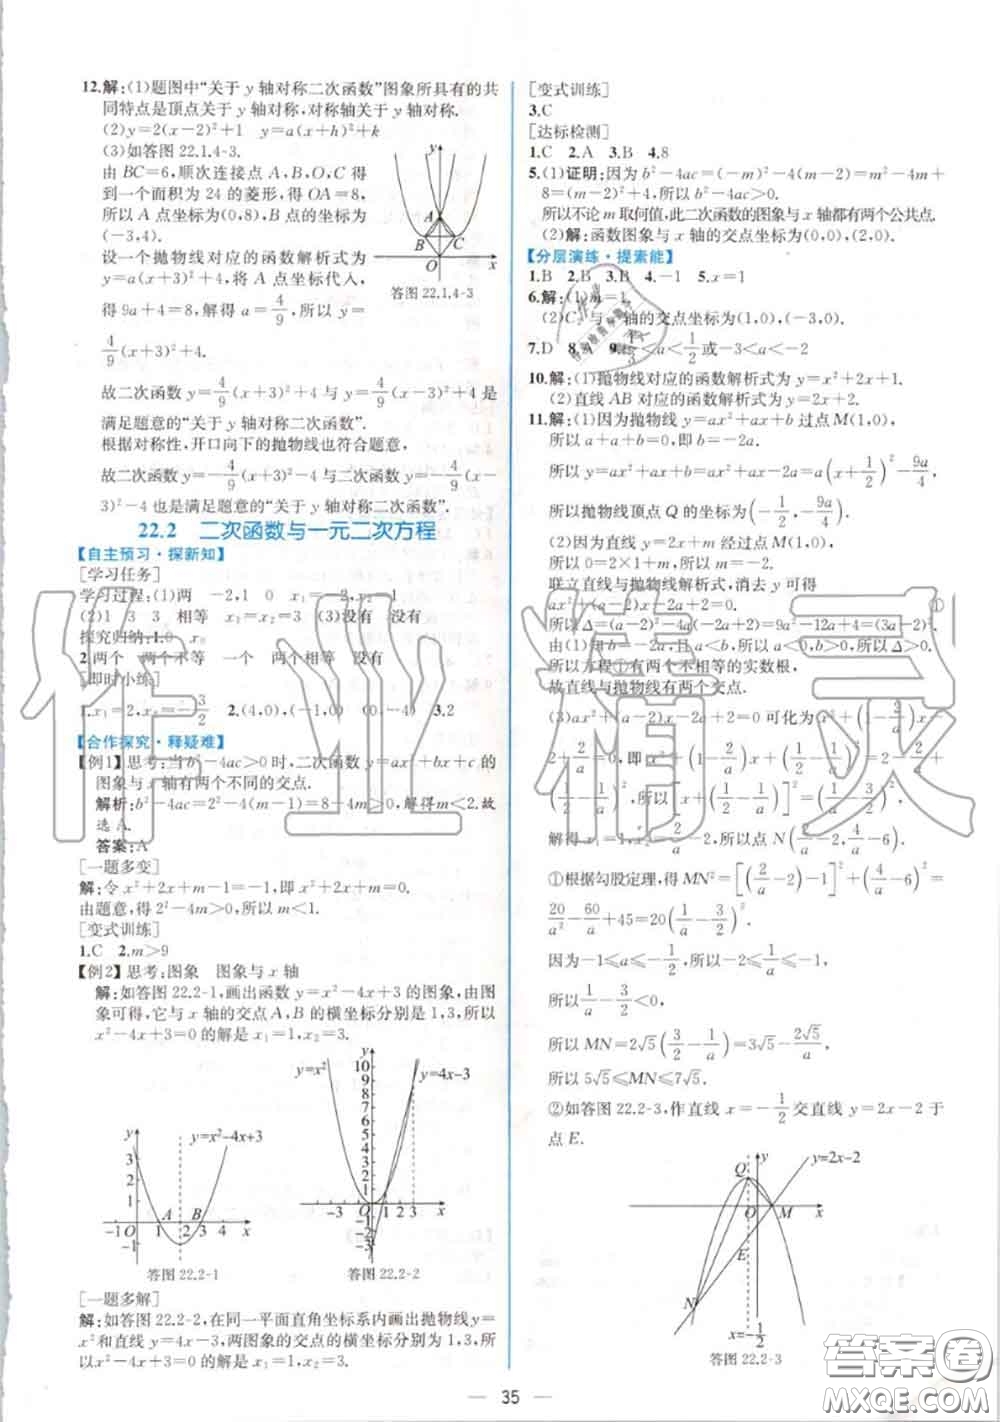 12.解:(1)题图中“关于y轴对称二次函数”图象所具有的共
同特点是顶点关于y轴对称,对称轴关于y轴对称.
(2)y=2(x-2)²+1 y=a(x+h)²+k
(3)如答图22.1.4-3.
由BC=6,顺次连接点A、B、O、C得
到一个面积为24的菱形,得OA=8,
所以A点坐标为(0,8),B点的坐标为
(-3,4).
设一个抛物线对应的函数解析式为
y=a(x+3)²+4,将A点坐标代入,
得9a+4=8,解得a=4/9,所以y=
4/9(x+3)²+4.
故二次函数y=4/9(x+3)²+4与y=4/9(x-3)²+4是
满足题意的“关于y轴对称二次函数”.
根据对称性,开口向下的抛物线也符合题意,
故二次函数y=-4/9(x+3)²-4与二次函数y=-4/9(x-
3)²-4也是满足题意的“关于y轴对称二次函数”.
y
A
B
C
O
x
答图22.1.4-3
22.2 二次函数与一元二次方程
【自主预习·探新知】
[学习任务]
学习过程:(1)两 -2,1 0 x₁=-2,x₂=1
(2)1 3 3 相等 x₁=x₂=3 (3)没有 没有
探究归纳:1.0 x₀
2.两个 两个不等 一个 两个相等 没有
[即时小练]
1.x₁=2,x₂=-3/2 2.(4,0),(-1,0) (0,-4) 3.2
【合作探究·释疑难】
【例1】思考:当b²-4ac>0时,二次函数y=ax²+bx+c的
图象与x轴有两个不同的交点.
解析:b²-4ac=2²-4(m-1)=8-4m>0,解得m<2.故
选A.
答案:A
[一题多变]
解:令x²+2x+m-1=-1,即x²+2x+m=0.
由题意,得2²-4m>0,所以m<1.
[变式训练]
1.C 2.m>9
【例2】思考:图象 图象与x轴
解:如答图22.2-1,画出函数y=x²-4x+3的图象,由图
象可得,它与x轴的交点A、B的横坐标分别是1,3,所以
x²-4x+3=0的解是x₁=1,x₂=3.
y
y=x²-4x+3
3
2
1
A
B
-1 O 1 2 3 4 x
-1
答图22.2-1
y=x²
y
y=4x-3
10
9
8
7
6
5
4
3
2
1
-3 -1 0 1 2 3 x
答图22.2-2
[一题多解]
解:如答图22.2-2,在同一平面直角坐标系内画出抛物线y=
x²和直线y=4x-3,两图象的交点的横坐标分别为1,3,所
以x²-4x+3=0的解是x₁=1,x₂=3.
[变式训练]
3.C
[达标检测]
1.C 2.A 3.B 4.8
5.(1)证明:因为b²-4ac=(-m)²-4(m-2)=m²-4m+
8=(m-2)²+4,所以b²-4ac>0.
所以不论m取何值,此二次函数的图象与x轴都有两个公共点.
(2)解:函数图象与x轴的交点坐标为(0,0),(2,0).
【分层演练·提素能】
1.B 2.B 3.B 4.-1 5.x=1
6.解:(1)m=1.
(2)C₂与x轴的交点坐标为(1,0),(-3,0).
7.D 8.A 9.1/3<a<1/2或-3<a<-2
10.解:(1)抛物线对应的函数解析式为y=x²+2x+1.
(2)直线AB对应的函数解析式为y=2x+2.
11.解:(1)因为抛物线y=ax²+ax+b过点M(1,0),
所以a+a+b=0,即b=-2a.
所以y=ax²+ax+b=ax²+ax-2a=a(x+1/2)²-9a/4.
所以抛物线顶点Q的坐标为(-1/2,-9a/4).
(2)因为直线y=2x+m经过点M(1,0),
所以0=2×1+m,所以m=-2.
联立直线与抛物线解析式,消去y可得
ax²+(a-2)x-2a+2=0. ①
所以Δ=(a-2)²-4a(-2a+2)=9a²-12a+4=(3a-2)².
由(1)知b=-2a,且a<b,所以a<0,b>0,所以Δ>0.
所以方程①有两个不相等的实数根,
故直线与抛物线有两个交点.
(3)ax²+(a-2)x-2a+2=0可化为x²+(1-2/a)x-
2+2/a=0,即x²+(1-2/a)x+(1/2-1/a)²=
(1/a-3/2)²,所以[x+(1/2-1/a)]²=(1/a-3/2)²,
解得x₁=1,x₂=2/a-2,所以点N(2/a-2,4/a-6).
①根据勾股定理,得MN²=[(2/a-2)-1]²+(4/a-6)²=
20/a²-60/a+45=20(1/a-3/2)².
因为-1≤a≤-1/2,所以-2≤1/a≤-1,
所以1/a-3/2<0,
所以MN=2√5(3/2-1/a)=3√5-2√5/a,
所以5√5≤MN≤7√5.
②如答图22.2-3,作直线x=-1/2交直线y=2x-2于
点E.
y
y=2x-2
Q
O
M
x
E
N
x=-1/2
答图22.2-3
35
作业精灵
答案圈
MXQE.COM